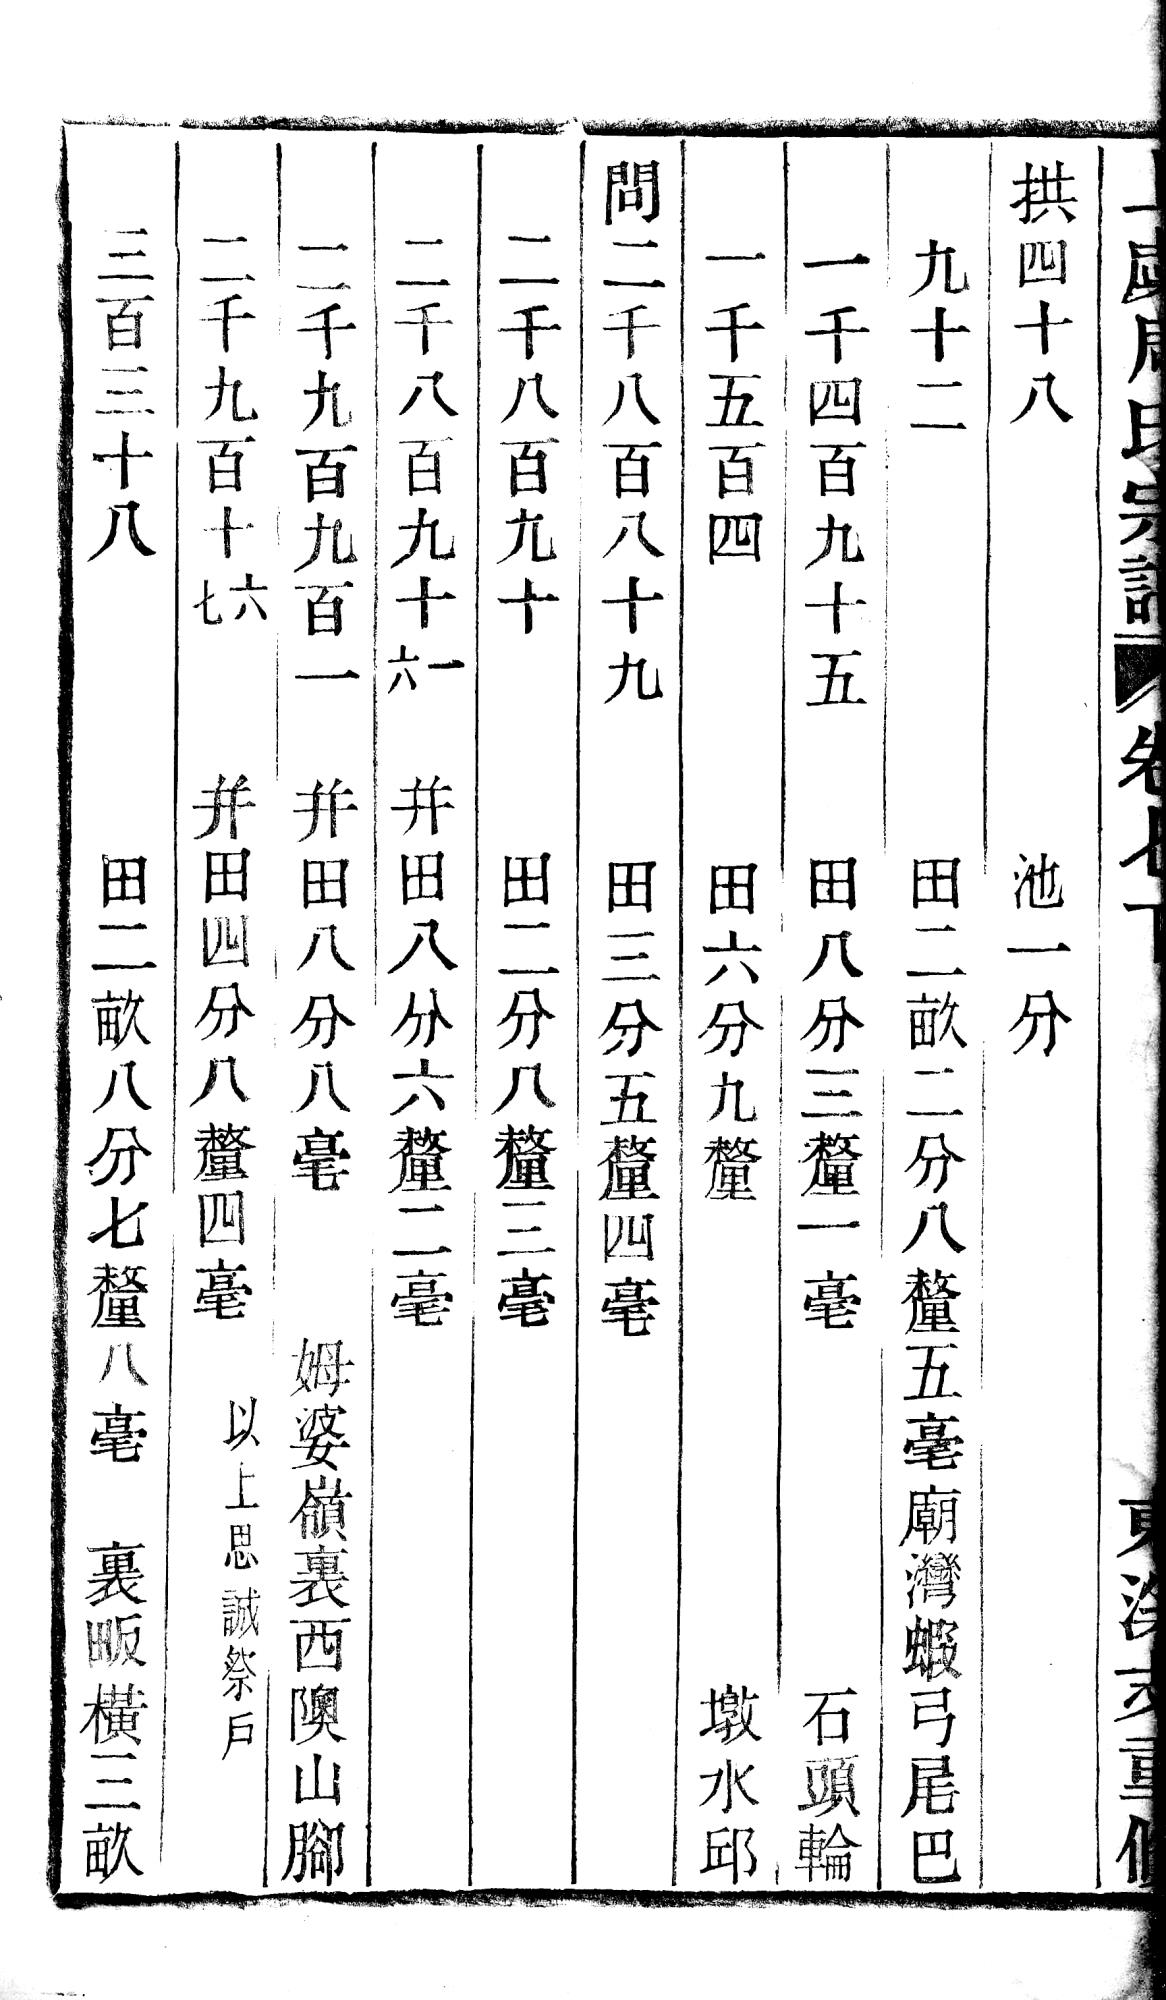 周氏宗譜 卷七下 重修
拱四十八 池一分
九十二 田二畝二分八釐五毫 廟灣蝦弓尾巴
一千四百九十五 田八分三釐一毫 石頭輪
一千五百四 田六分九釐 墩水邱
問二千八百八十九 田三分五釐四毫
二千八百九十 田二分八釐三毫
二千八百九十一六 并田八分六釐二毫
二千九百九百一 并田八分八毫 姆婆嶺裏西隩山腳
二千九百十六七 并田四分八釐四毫 以上思誠祭戶
三百三十八 田二畝八分七釐八毫 裏畈橫三畝